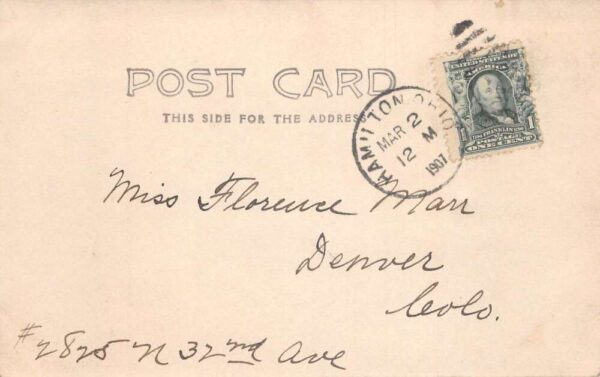 POST CARD
THIS SIDE FOR THE ADDRESS
HAMILTON OHIO.
MAR 2
12 M
1907
UNITED STATES OF
AMERICA
FRANKLIN
1
POSTAGE
ONE CENT
Miss Florence Marr
Denver
Colo.
#2825 N 32nd Ave